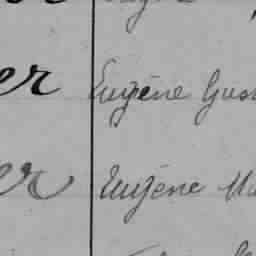 er Eugène Gus
er Eugène Ma